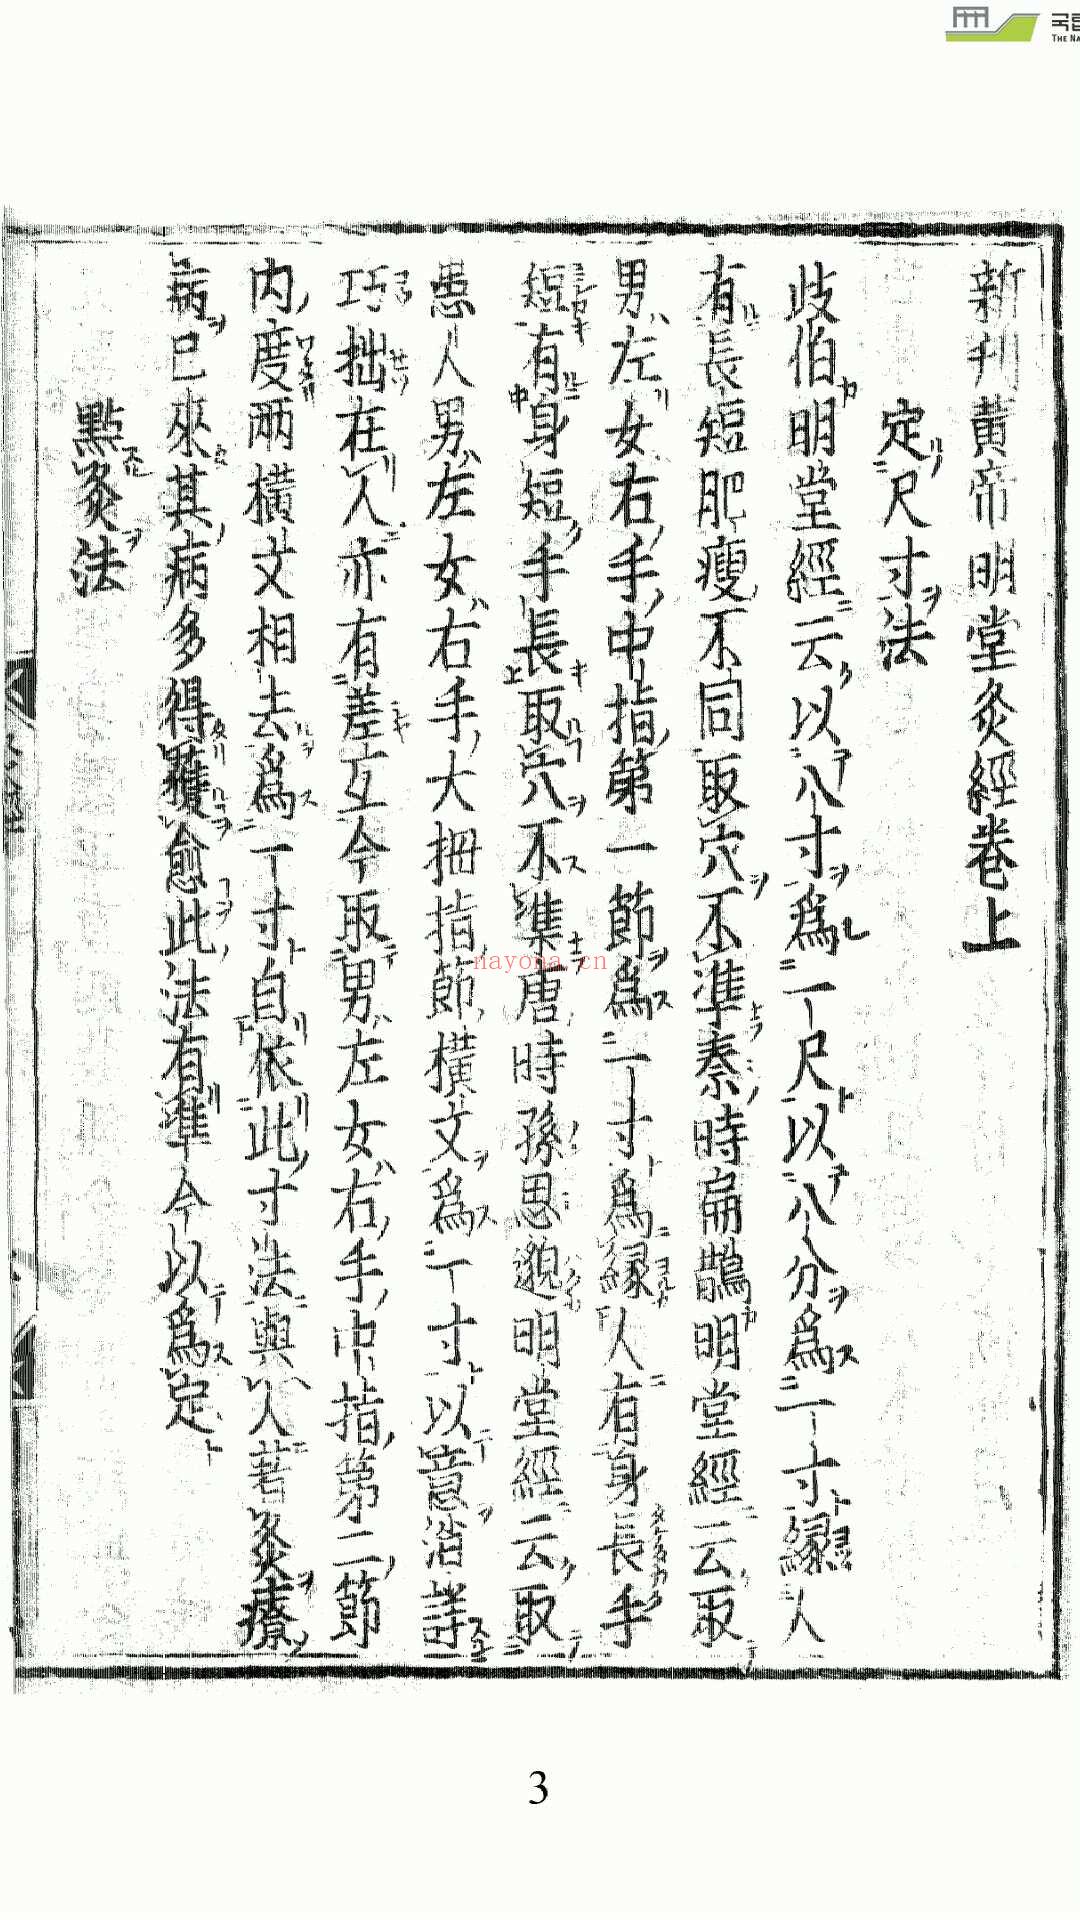 国立
THE NA
新刊黄帝明堂灸經卷上
定尺寸法
歧伯明堂經云以八寸爲一尺以八分爲一寸緣人
有長短肥瘦不同取穴不準秦時扁鵲明堂經云取
男左女右手中指第一節爲一寸爲緣人有身長手
短有身短手長取穴不準唐時孫思邈明堂經云取
患人男左女右手大拇指節橫文爲一寸以意消詳
巧拙在人亦有差互今取男左女右手中指第二節
内度兩橫文相去爲一寸自依此寸法與人著灸療
病已來其病多得獲愈此法有準今以爲定
點灸法
nayona.cn
3